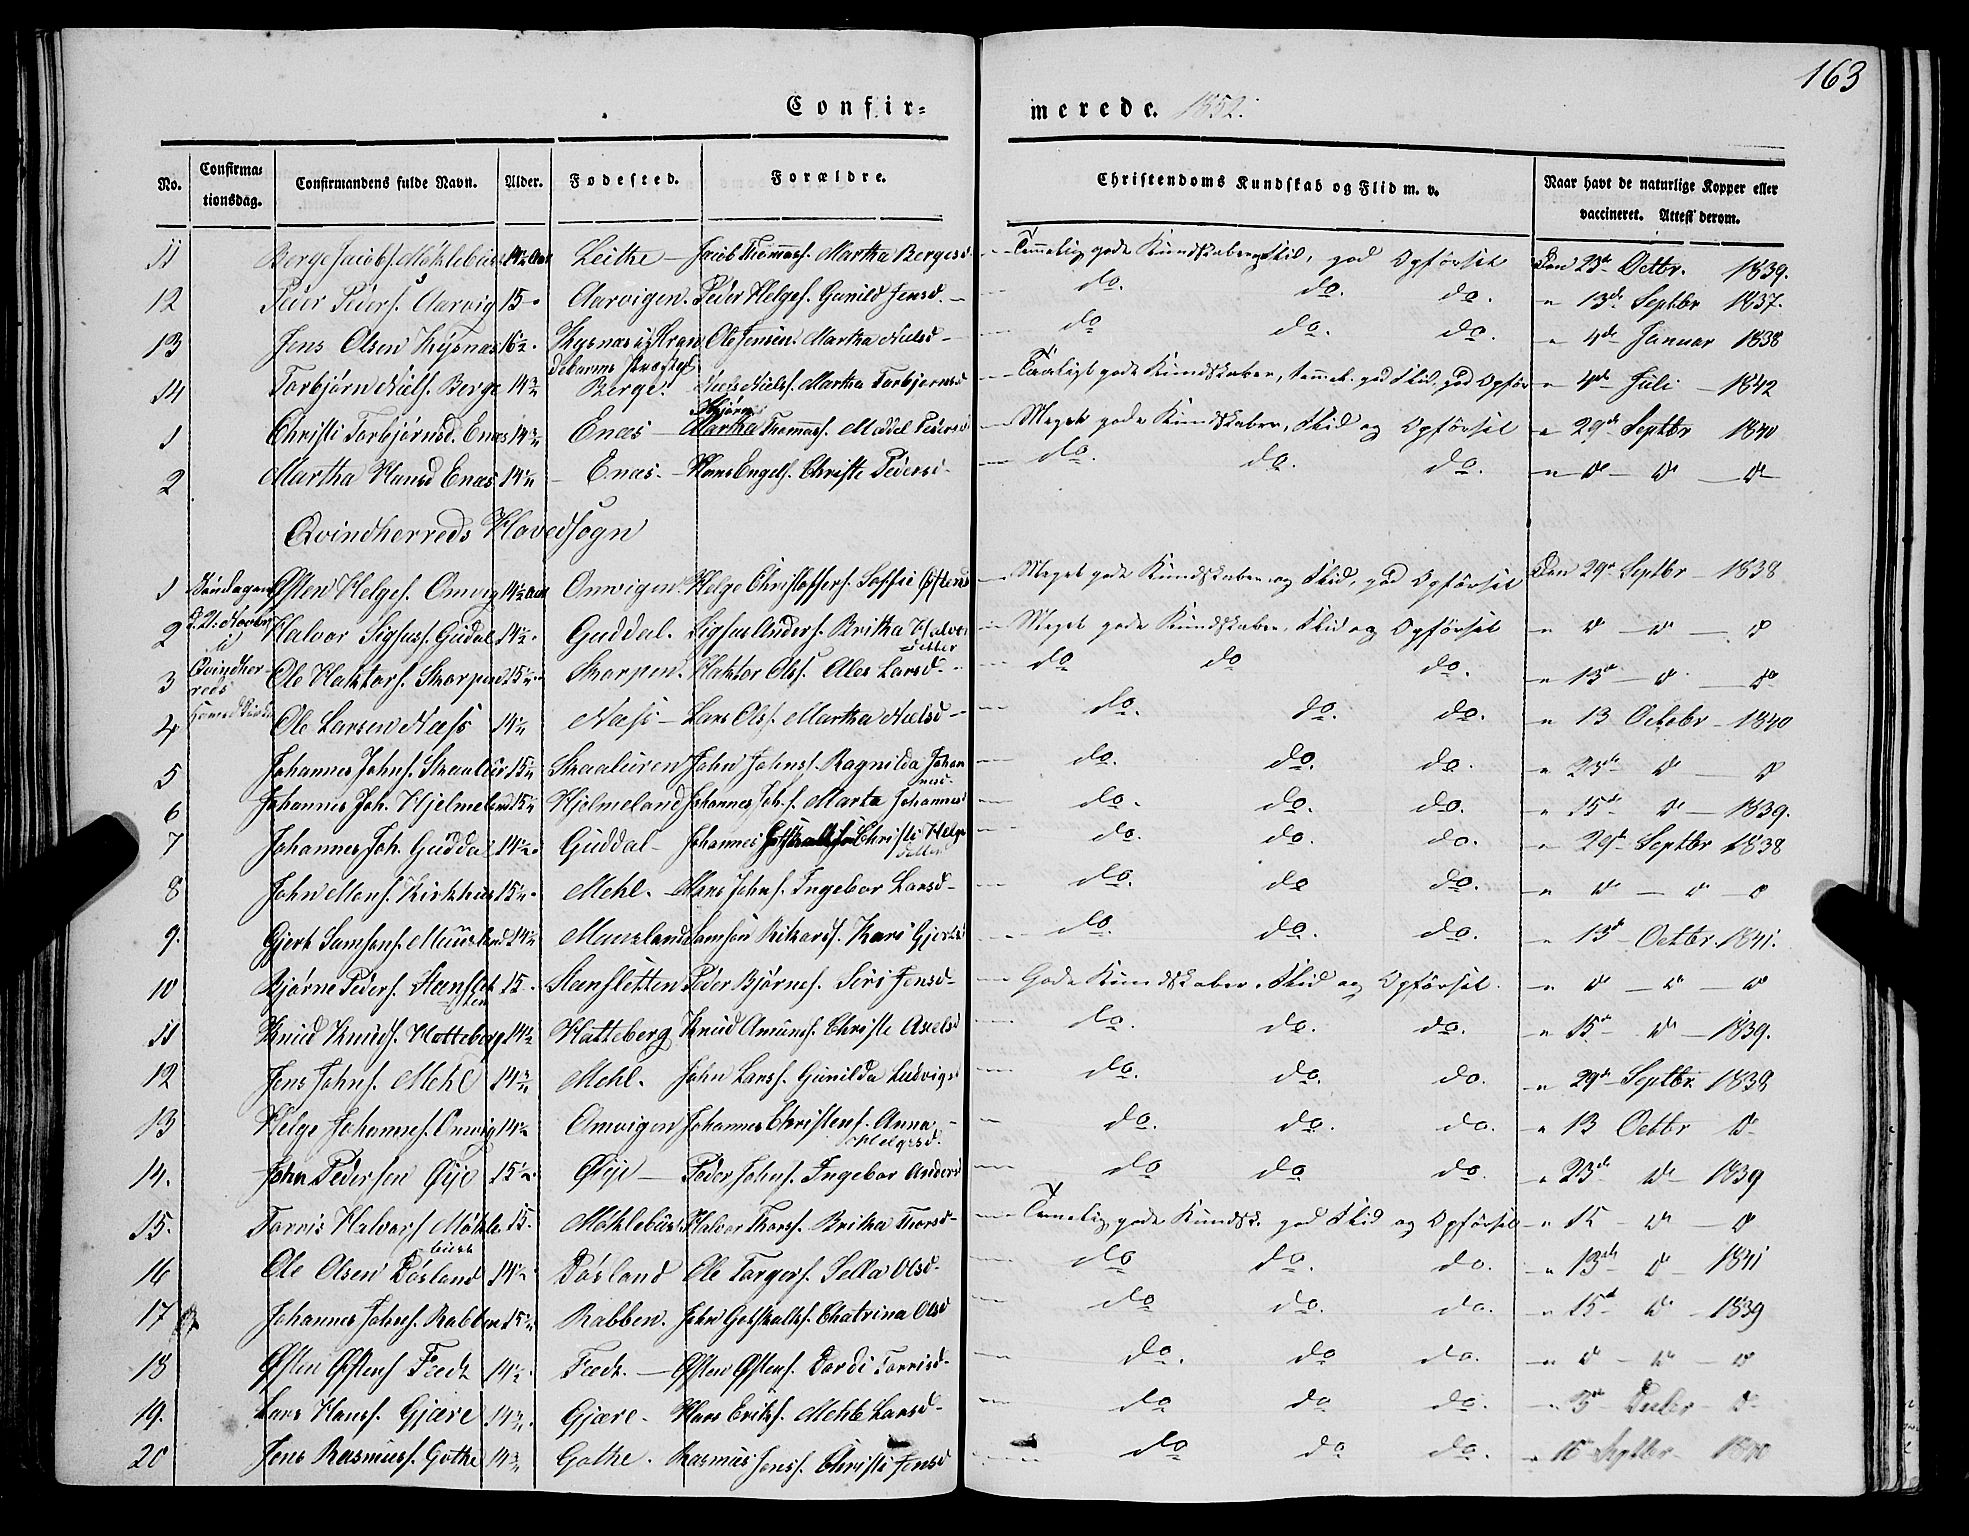 163
Confir= merede. 1852.
No. Confirma= tionsdag. Confirmandens fulde Navn. Alder. Fødested. Forældre. Christendoms Kundskab og Flid m. v. Naar havt de naturlige Kopper eller vaccineret. Attest derom.
11 Børge Jacobs. Møklebust 14½ Aar Leithe — Jacob Thomass. Martha Børgesd. — Temmelig gode Kundskaber og Flid, god Opførsel Den 23de Octbr. 1839.
12 Peder Peders. Aarvig 15 " Aarvigen. Peder Helges. Gunild Jensd. — do. do. do. " 13de Septbr 1837.
13 Jens Olsen Kysnæs 16½ " Kysnæs i Stran Ole Jensen. Martha Nielsd — do do. do. " 4de Januar 1838
debarms Præstgd
14 Torbjørn Niels. Berge 14¾ Berge. Niels Niels. Martha Torbjørnsd — gode Kundskaber, temmel. god Flid, god Opførs " 4de Juli — 1842
1 Christi Torbjørnsd. Enæs 14¾ Enæs — Thomass. Madel Pedersd — Meget gode Kundskaber, Flid og Opførsel " 29de Septbr 1840
2 Martha Hansd Enæs 14¼ Enæs. — Hans Engels. Christi Pedersd — do. do. do. " do — do — do
Qvindherreds Hovedsogn
1 Søndagen Østen Helges. Omvig 14½ Aar Omvigen. Helge Christoffers. Soffie Østensd — Meget gode Kundskaber og Flid, god Opførsel Den 29de Septbr — 1838
2 d. 21. Novbr i Halvor Sigfuss. Guddal 14½ " Guddal. Sigfus Anders. Britha Halvorsdatter — Meget gode Kundskaber, Flid og Opførsel " do — do — do
3 Qvindherreds Ole Haktors. Skorpen 15¼ " Skorpen. Haktor Ols. Ales Larsd. — do do do. " 13de — do — do
4 Hovedkirke Ole Larsen Næss 14¼ Næss — Lars Ols. Martha Nielsd — do. do. do. " 13 Octobr — 1840
5 Johannes Johns. Skaalur 15¼ Skaaluren John Johns. Ragnilda Johannesd. — do. do. do. " 23de do — do
6 Johannes Joh. Hjelmeland 15¼ Hjelmeland Johannes Joh. s. Marta Johannesd — do. do. do. " 15de do — 1839.
7 Johannes Joh. Guddal 14½ " Guddal — Johannes Christi Helgedatter — do. do. do. " 29de Septbr 1838
8 John Mons. Kirkhus 15¼ " Mehl. — Mons Johns. Ingebor Larsd — do. do do. " do — do — do
9. Gjert Samsons. Muusland 14¼ Muusland Samson Rikards. Kari Gjertsd — do. do. do. " 13de — Octbr. 1841.
10 Bjørne Peders. Stensletten 15 " Stensletten Peder Bjørnes. Siri Jensd — Gode Kundskaber, Flid og Opførsel. " do — do — do
11 Knud Knuds. Hatteberg 14½ Hatteberg Knud Amuns. Christi Axelsd — do. do. do. " 15de do — 1839.
12 Jens Johns. Mehl 14¾ Mehl. John Lars. Gunilda Ludvigsd — do. do. do. " 29de Septbr 1838
13 Helge Johanness. Omvig 14½ Omvigen Johannes Christens. Anna Helgesd. — do. do. do. " 13 Octbr do
14. John Pedersen Øije 15½ " Øije — Peder Johns. Ingebor Andersd — do do do " 23de do — 1839
15. Torris Halvors. Møklebust 15. Møklebust. Halvor Thors. Britha Thorsd — Temmelig gode Kundsk. god Flid og Opførsel " 15 — do — do
16 Ole Olsen Døsland 14½ " Døsland Ole Torgers. Sella Olsd. — do do. do. " 13de do — 1841
17 Johannes Johns. Rabben 15¼ Rabben. John Gotskalks. Chatrina Olsd — do do. do. " 15de do — 1839
18 Østen Østens. Fædt 14½ " Fædt. — Østen Østens. Dordi Torrisd. — do. do do. " do — do — do
19. Lars Hans. Gjære 14¾ " Gjære. Hans Eriks. Mehle Larsd — do do do. " do
20 Jens Rasmuss. Gothe 14¾ Gothe. Rasmus Jenss. Christi Jensd — do do do. " 15 Septbr 1840